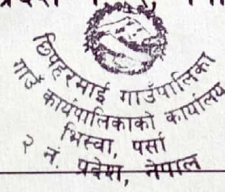 छिपहरमाई गाउँपालिका
गाउँ कार्यपालिकाको कार्यालय
भिस्वा, पर्सा
२ नं. प्रदेश, नेपाल